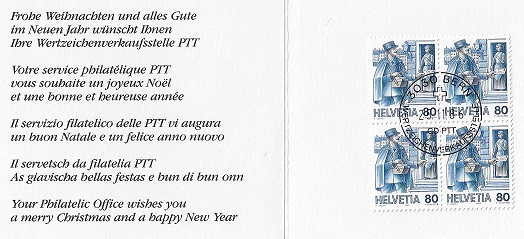 Frohe Weihnachten und alles Gute
im Neuen Jahr wünscht Ihnen
Ihre Wertzeichenverkaufsstelle PTT
Votre service philatélique PTT
vous souhaite un joyeux Noël
et une bonne et heureuse année
Il servizio filatelico delle PTT vi augura
un buon Natale e un felice anno nuovo
Il servetsch da filatelia PTT
As giavischa bellas festas e bun di bun onn
Your Philatelic Office wishes you
a merry Christmas and a happy New Year
HELVETIA 80
HELVETIA 80
HELVETIA 80
HELVETIA 80
3030 BERN
GD PTT
WERTZEICHENVERKAUFSSTELLE